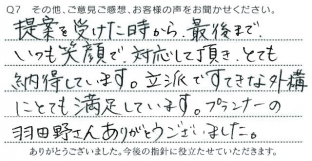 Q7 その他、ご意見ご感想、お客様の声をお聞かせください。
提案を受けた時から、最後まで、
いつも笑顔で対応して頂き、とても
納得しています。立派ですてきな外構
にとても満足しています。プランナーの
羽田野さんありがとうございました。
ありがとうございました。今後の指針に役立たせていただきます。